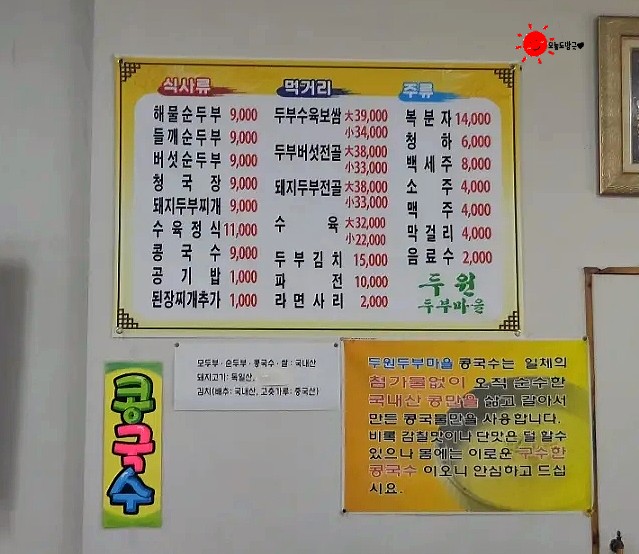 오늘도맑근♥
식사류
해물순두부 9,000
들깨순두부 9,000
버섯순두부 9,000
청국장 9,000
돼지두부찌개 9,000
수육정식 11,000
콩국수 9,000
공기밥 1,000
된장찌개추가 1,000
먹거리
두부수육보쌈 大39,000
小34,000
두부버섯전골 大38,000
小33,000
돼지두부전골 大38,000
小33,000
수육 大32,000
小22,000
두부김치 15,000
파전 10,000
라면사리 2,000
주류
복분자 14,000
청하 6,000
백세주 8,000
소주 4,000
맥주 4,000
막걸리 4,000
음료수 2,000
두원
두부마을
콩국수
모두부·순두부·콩국수·쌀 : 국내산
돼지고기: 독일산,
김치(배추: 국내산, 고춧가루: 중국산)
두원두부마을 콩국수는 일체의
첨가물없이 오직 순수한
국내산 콩만을 삶고 갈아서
만든 콩국물만을 사용합니다.
비록 감칠맛이나 단맛은 덜 할수
있으나 몸에는 이로운 구수한
콩국수 이오니 안심하고 드십
시요.